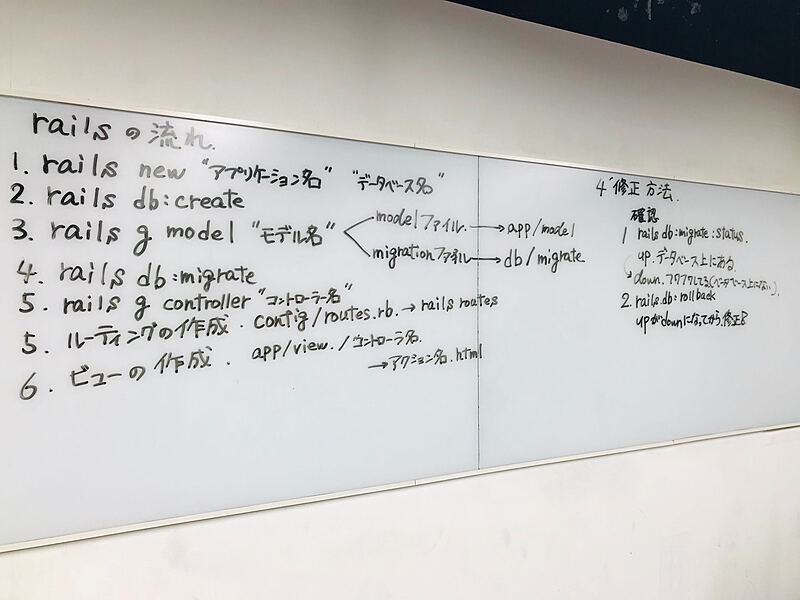 railsの流れ.
1. rails new "アプリケーション名" "データベース名"
2. rails db:create
3. rails g model "モデル名"
modelファイル. → app/model
migrationファイル → db/migrate
4. rails db:migrate
5. rails g controller "コントローラー名"
5. ルーティングの作成. config/routes.rb. → rails routes
6. ビューの作成. app/view./コントローラ名.
→アクション名.html
4'修正方法.
確認
1 rails db:migrate:status.
up. データベース上にある.
down. フワフワしてる(データベース上にない).
2. rails.db:rollback
upがdownになってから.修正